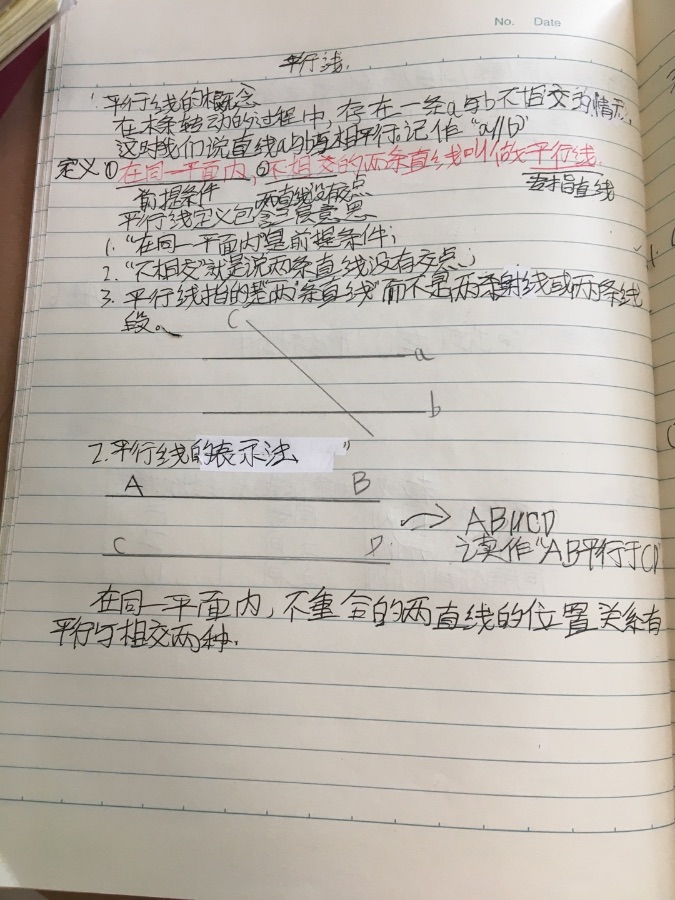 No. Date
平行线.
1 平行线的概念
在木条转动的过程中,存在一条a与b不相交的情形,
这时我们说直线a与b互相平行.记作“a//b”
定义①在同一平面内,②不相交的两条直线叫做平行线.
前提条件 两直线没有交点 专指直线
平行线定义包含三层意思
1.“在同一平面内”是前提条件;
2.“不相交”就是说两条直线没有交点;
3.平行线指的是“两条直线”而不是两条射线或两条线
段。
C
a
b
2.平行线的表示法 ”
A B
AB//CD
C D
读作“AB平行于CD
在同一平面内,不重合的两直线的位置关系有
平行与相交两种.